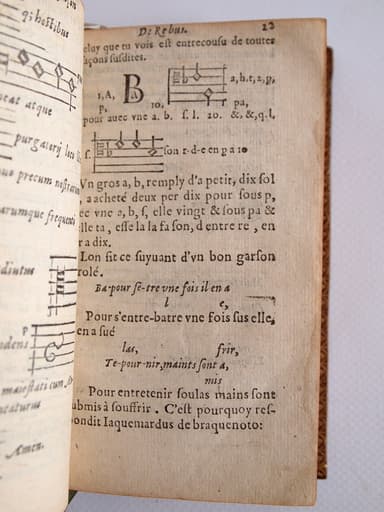 qi hostibus
ncat atque
purgaterij
precum
rumque
dintus
P
odens
maiestati cum
caturus
Amen.
De Rebus. 12
eluy que tu vois est entrecousu de toutes
açons susdites.
1, A, Ba 10. a, b, t, 2, p,
p. pa,
pour auec vne a. b. s. l. 20. &, &, q. l,
s. son r-d-e en p a 10
Vn gros a, b, remply d'a petit, dix sol
, a acheté deux per dix pour sous p,
ec vne a, b, s, elle vingt & sous pa &
elle ta, esse la la fa son, d entre re, en
ra dix.
Lon fit ce suyuant d'vn bon garson
rolé.
Ba-pour se-tre vne fois il en a
l e,
Pour s'entre-batre vne fois sus elle,
en a sué
las, frir,
Te-pour-nir, maints sont a,
mis
Pour entretenir soulas mains sont
ubmis à souffrir. C'est pourquoy res-
ondit Iaquemardus de braquenoto: